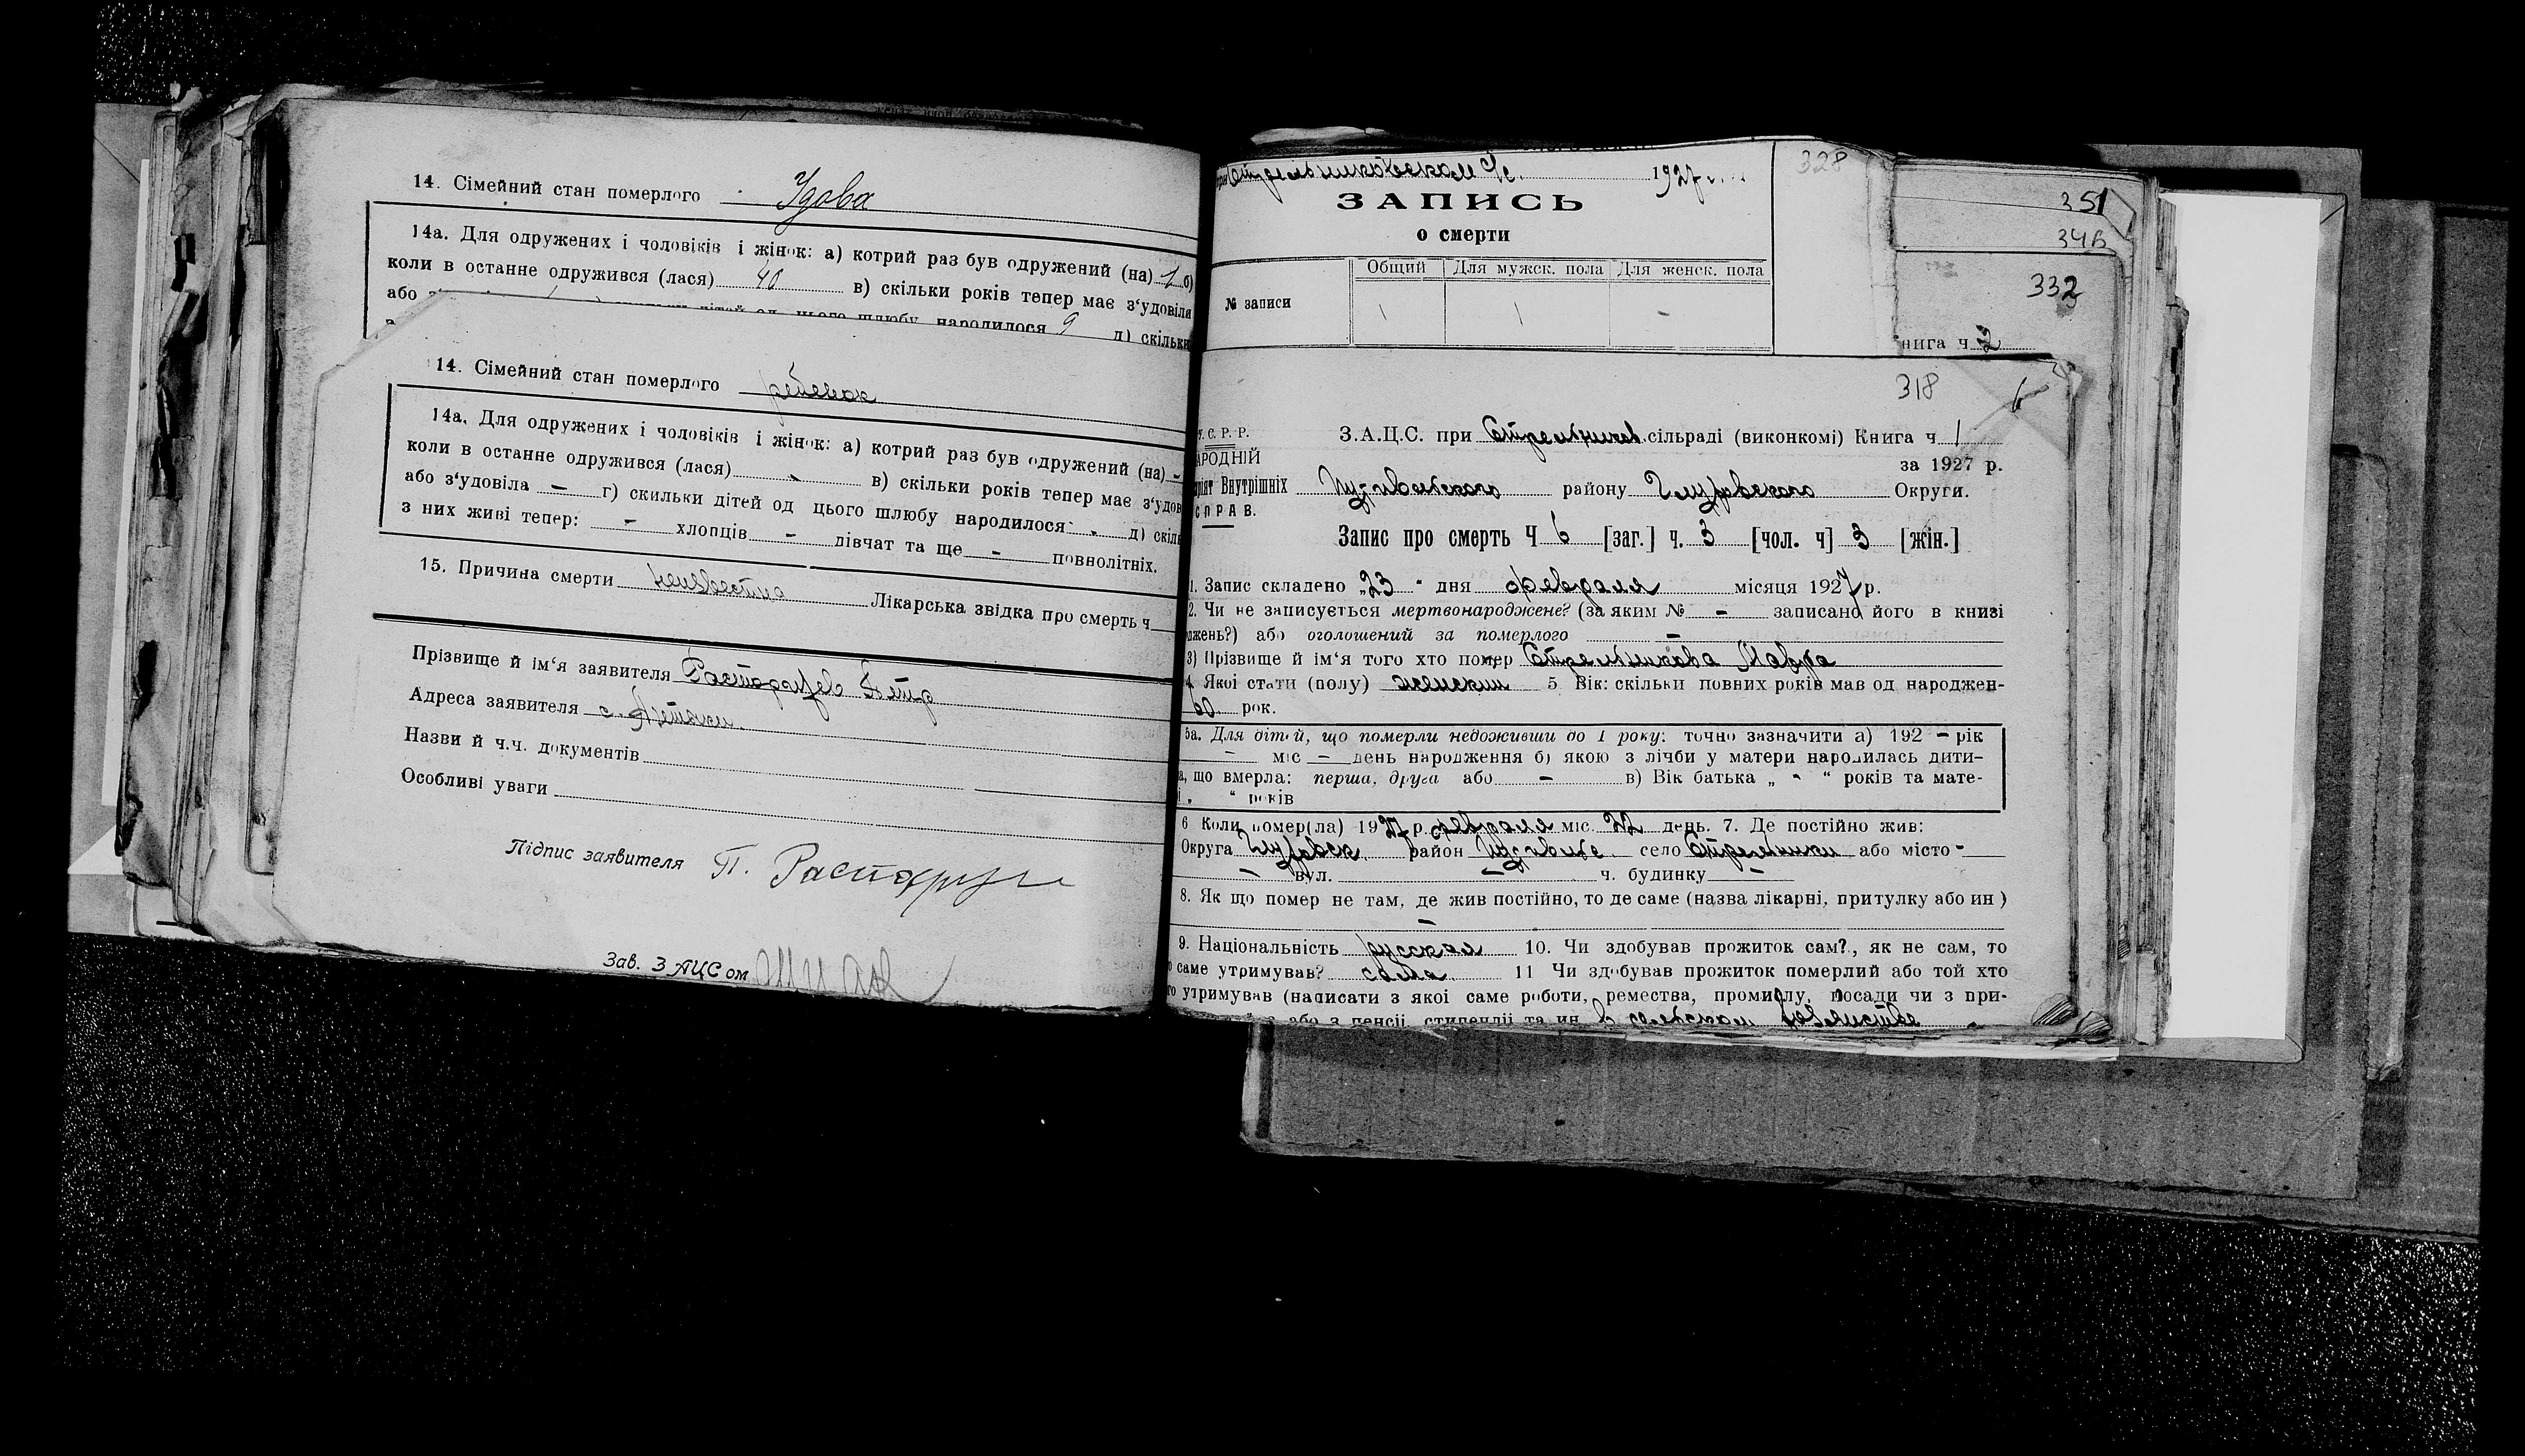 14. Сімейний стан померлого Удова
14а. Для одружених і чоловіків і жінок: а) котрий раз був одружений (на) 1 б)
коли в останне одружився (лася) 40 в) скільки років тепер має з‘удовіли
або
народилося 9 д) скільки
14. Сімейний стан померлого ребенок
14а. Для одружених і чоловіків і жінок: а) котрий раз був одружений (на) -
коли в останне одружився (лася) - в) скільки років тепер має з‘удов
або з‘удовіла — г) скильки дітей од цього шлюбу народилося: - д) скіль
з них живі тепер: - хлопців - дівчат та ще - повнолітніх.
15. Причина смерти неизвестна Лікарська звідка про смерть ч
Прізвище й ім‘я заявителя Петр
Адреса заявителя с.
Назви й ч.ч. документів
Особливі уваги
Підпис заявителя П.
Зав. ЗАЦС ом
Стрельниковском с/с. 1927 г.
328
ЗАПИСЬ
о смерти
Общий Для мужск. пола Для женск. пола
№ записи 1 1 -
351
34В
332
нига ч 2
318
6
У. С. Р. Р.
АРОДНІЙ
Внутрішніх
СПРАВ.
З.А.Ц.С. при Стрельников. сільраді (виконкомі) Книга ч 1
за 1927 р.
Путивльского району Глуховского Округи.
Запис про смерть Ч 6 [заг.] ч. 3 [чол. ч] 3 [жін.]
1. Запис складено „23 “ дня февраля місяця 1927 р.
2. Чи не записується мертвонароджене? (за яким № - записано його в книзі
джень?) або оголошений за померлого -
3) Прізвище й ім‘я того хто помер Стрельникова Мавра
4. Якої стати (полу) женский 5 Вік: скільки повних років мав од народжен-
60 рок.
5а. Для дітей, що померли недоживши до 1 року: точно зазначити а) 192 - рік
- міс — день народження б) якою з лічби у матери народилась дити-
а, що вмерла: перша, друга або - в) Вік батька „ - “ років та мате-
і „ “ років
6 Коли помер(ла) 1927 р. февраля міс. 22 день. 7. Де постійно жив:
Округа Глуховск. район Путивльс. село Стрельники або місто -
- вул. - ч. будинку -
8. Як що помер не там, де жив постійно, то де саме (назва лікарні, притулку або ин )
-
9. Національність русская 10. Чи здобував прожиток сам?, як не сам, то
о саме утримував? сама 11 Чи здобував прожиток померлий або той хто
го утримував (написати з якої саме роботи, ремества, промислу, посади чи з при-
або з пенсії, стипендії та ин в сельском хозяйстве